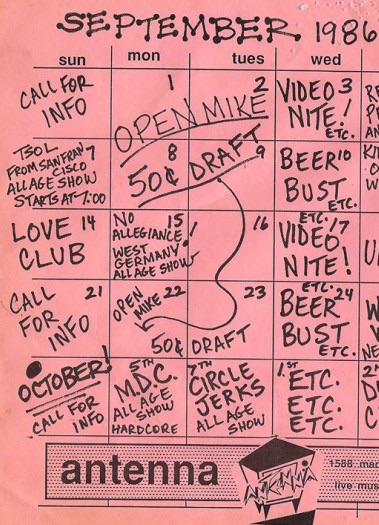 SEPTEMBER 1986
sun mon tues wed
CALL FOR
INFO
1
2
OPEN MIKE
VIDEO 3
NITE!
ETC.
TSOL
FROM SAN FRAN
CISCO
7
ALL AGE SHOW
STARTS AT 7:00
8
50¢ DRAFT
9
BEER 10
BUST
ETC.
LOVE 14
CLUB
NO 15
ALLEGIANCE!
WEST
GERMANY!
ALL AGE SHOW
16
ETC. 17
VIDEO
NITE!
21
CALL
FOR
INFO
OPEN 22
MIKE
23
50¢ DRAFT
ETC. 24
BEER
BUST
ETC.
OCTOBER!
CALL FOR
INFO
5TH
M.D.C.
ALL AGE
SHOW
HARDCORE
7TH
CIRCLE
JERKS
ALL AGE
SHOW
1.ST
ETC.
ETC.
ETC.
antenna
ANTENNA
1588 mad
live mus